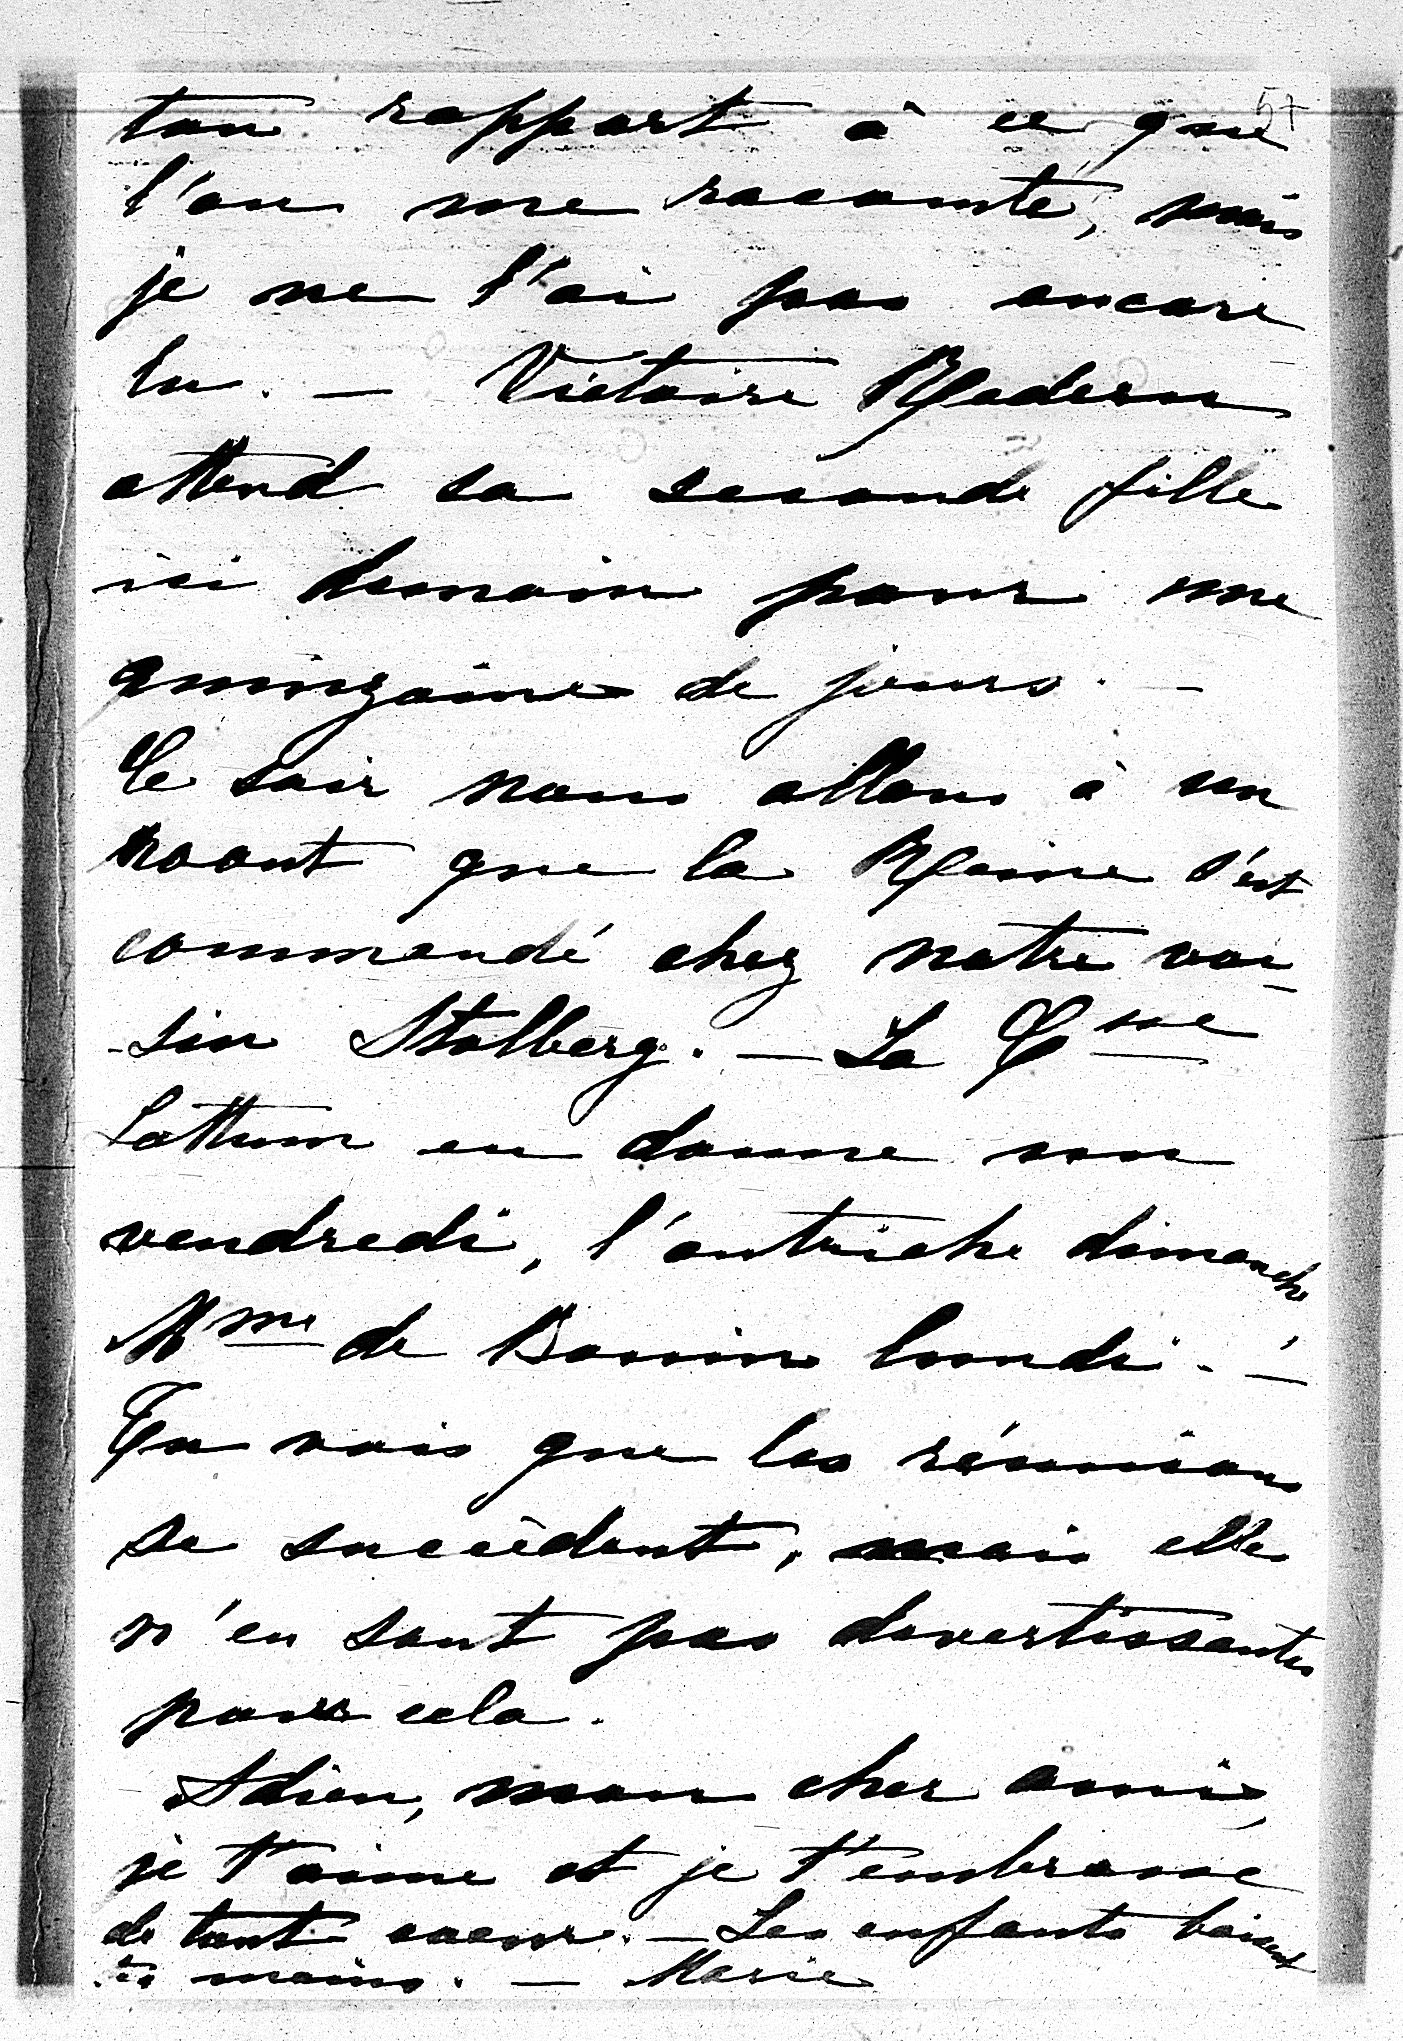 57
ton rapport à ce que
l'on me raconte, mais
je ne l'ai pas encore
lu. — Victoire Radern
attend sa seconde fille
ici demain pour une
quinzaine de jours. —
Ce soir nous allons à un
raout que la Reine s'est
commandé chez notre voi-
-sin Stolberg. — La Csse
Lottum en donne un
vendredi, l'autriche dimanche
Mme de Bonin lundi. —
Tu vois que les réunions
se succèdent, mais elles
n'en sont pas divertissantes
pour cela.
Adieu, mon cher ami,
je t'aime et je t'embrasse
de tout coeur. — Les enfants baisent
tes mains. — Marie